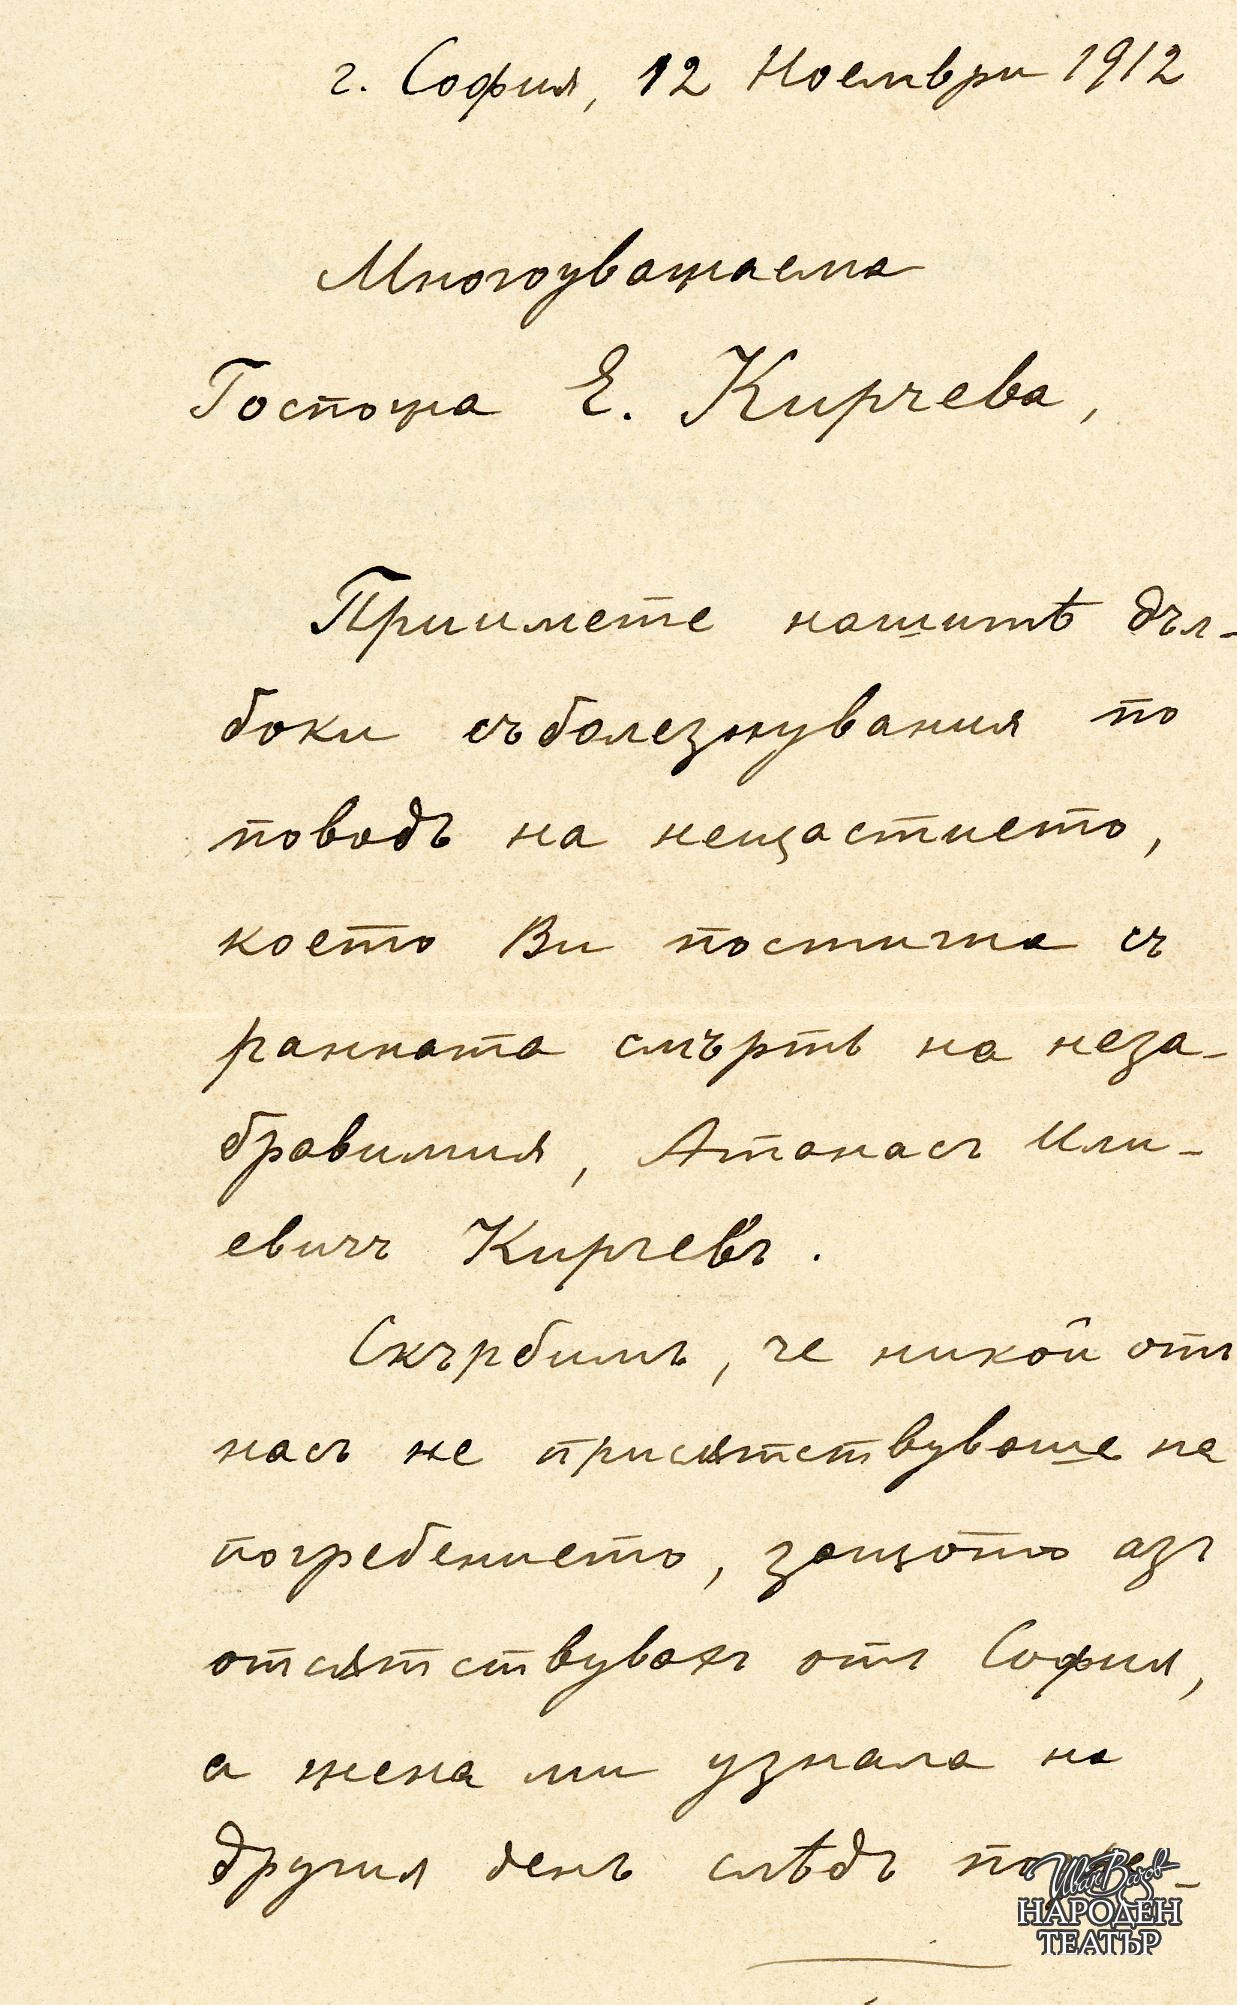 г. София, 12 Ноември 1912
Многоуважаема
Госпожа Е. Кирчева,
Приимете нашитѣ дъл-
боки съболезнувания по
поводъ на нещастието,
което Ви постигна съ
ранната смърть на неза-
бравимия, Атанасъ Или-
евичъ Кирчевъ.
Скърбимъ, че никой отъ
насъ не присѫтствуваше на
погребението, защото азъ
отсѫтствувахъ отъ София,
а жена ми узнала на
другия день слѣдъ
Иван Вазов
НАРОДЕН
ТЕАТЪР